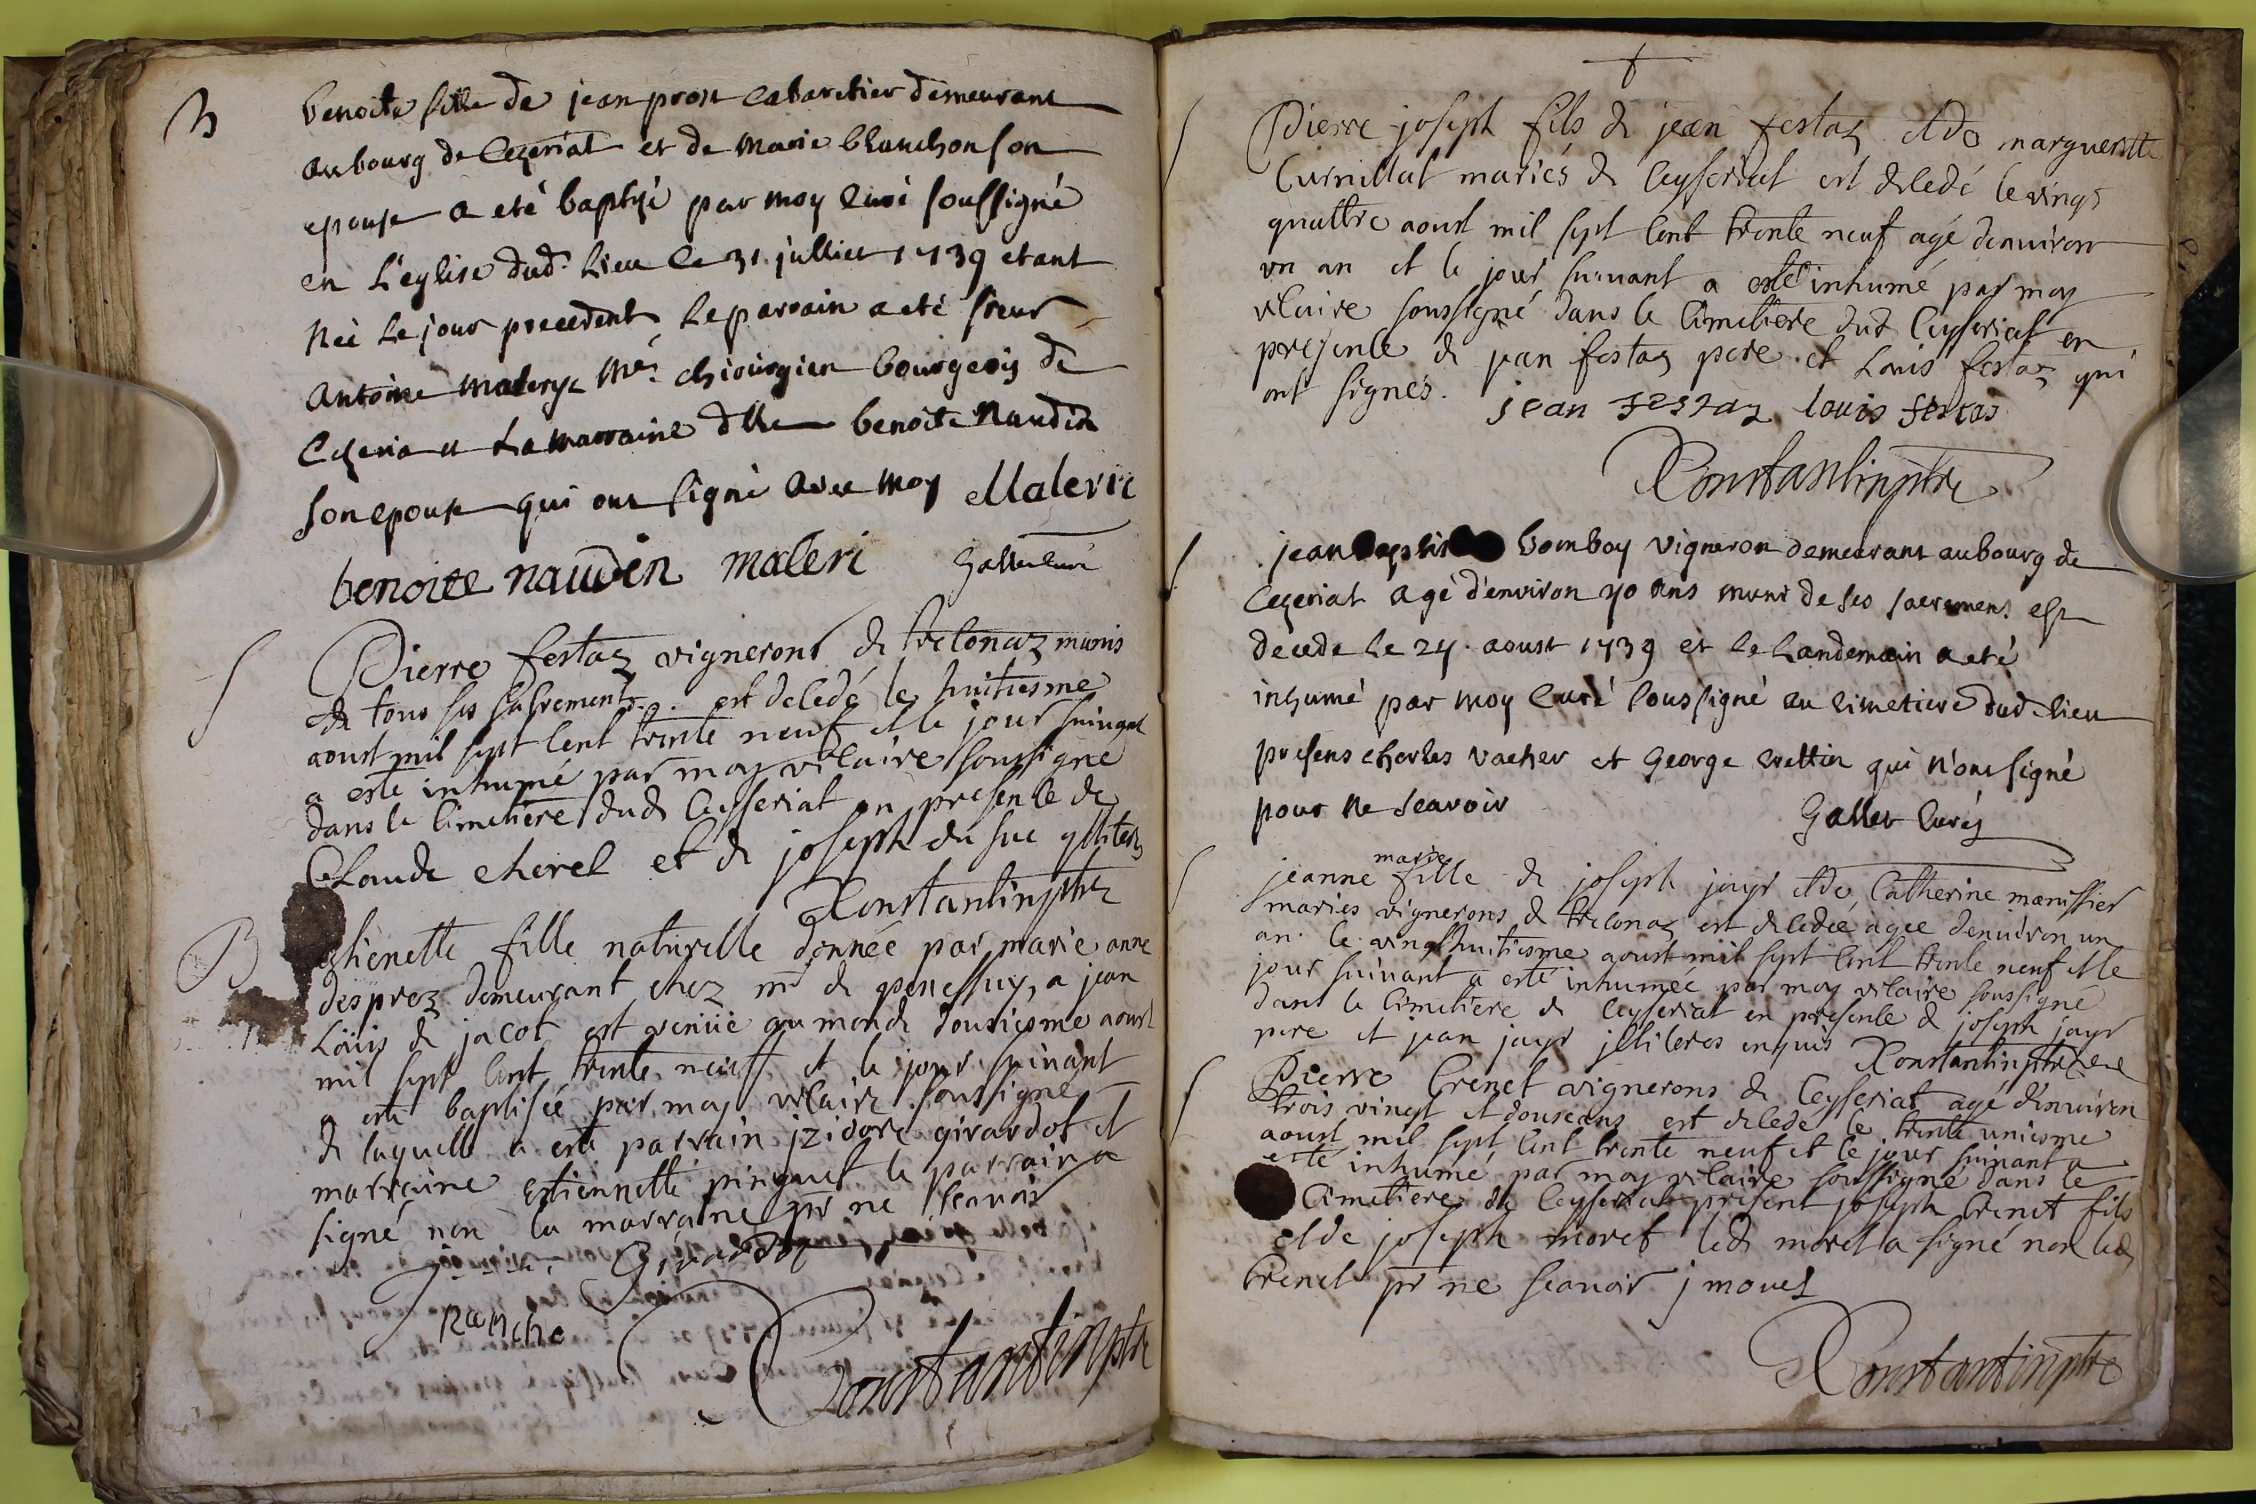 B
benoite fille de jean prost cabaretier demeurant
au bourg de Cezeriat et de Marie bluuchon son
epouse a eté baptisé par moy curé soussigné
en L'eglise dud. Lieu le 31 julliet 1739 etant
Néé le jour precedent Le parrain a eté sieur
Antoine Malerye Me. chirurgien bourgeois de
Cezeria et La marraine dlle benoite Naudin
son epouse qui ont signé avec moy Malerie
benoite naudin maleri Galler curé
Pierre festaz vignerons de treconaz munis
de tous ses sacrements est decedé le huitiesme
aoust mil sept cent trente neuf et le jour suivant
a esté inhumé par moy vicaire soussigné
dans le cimetiere dud Ceyseriat en presence de
Claude cherel et de joseph du suc illiteres
Constantin ptre
B
Estienette fille naturelle donnée par marie anne
desprez demeurant chez mr de a jean
Loüis de jacob est venüe au monde dousiesme aoust
mil sept cent trente neuff et le jour suivant
a esté baptisée par moy vicaire soussigné
de laquelle a esté parrain jzidore girardot et
marraine estiennette pinguet le parrain a
signé non la marraine pr ne scavoir
Girardot
franche
Constantin ptre
Pierre joseph fils de jean festaz et de margueritte
Curnillat mariés de Ceyseriat est decedé le vingt
quattre aoust mil sept cent trente neuf agé denviron
un an et le jour suivant a esté inhumé par moy
vicaire soussigné dans le cimetiere dud Ceyseriat en
presence de jean festaz pere et Louis festaz qui
ont signés. jean festaz louis festas
Constantin ptre
jean bomboy vigneron demeurant au bourg de
Cezeriat agé d'environ 70 ans muni de ses sacremens est
decede le 24 aoust 1739 et le Landemain a eté
inhumé par moy curé soussigné au cimetiere dud lieu
presens charles vacher et George qui n'ont signé
pour ne scavoir Galler curé
jeanne marie fille de joseph jayr et de Catherine manissier
mariés vignerons de treconaz est decedée agée denviron un
an le vingthuitiesme aoust mil sept cent trente neuf et le
jour suivant a esté inhumée par moy vicaire soussigné
dans le cimetiere de Ceyseriat en presence de joseph jayr
pere et jean jayr illiteres enquis Constantin ptre
Pierre Crenet vignerons de Ceyseriat agé d'environ
trois vingt et douse ans est decedé le trente uniesme
aoust mil sept cent trente neuf et le jour suivant a
esté inhumé par moy vicaire soussigné dans le
Cimetiere de Ceyseriat present joseph Crenet fils
et de joseph morel led morel a signé non led
Crenet pr ne scavoir j morel
Constantin ptre